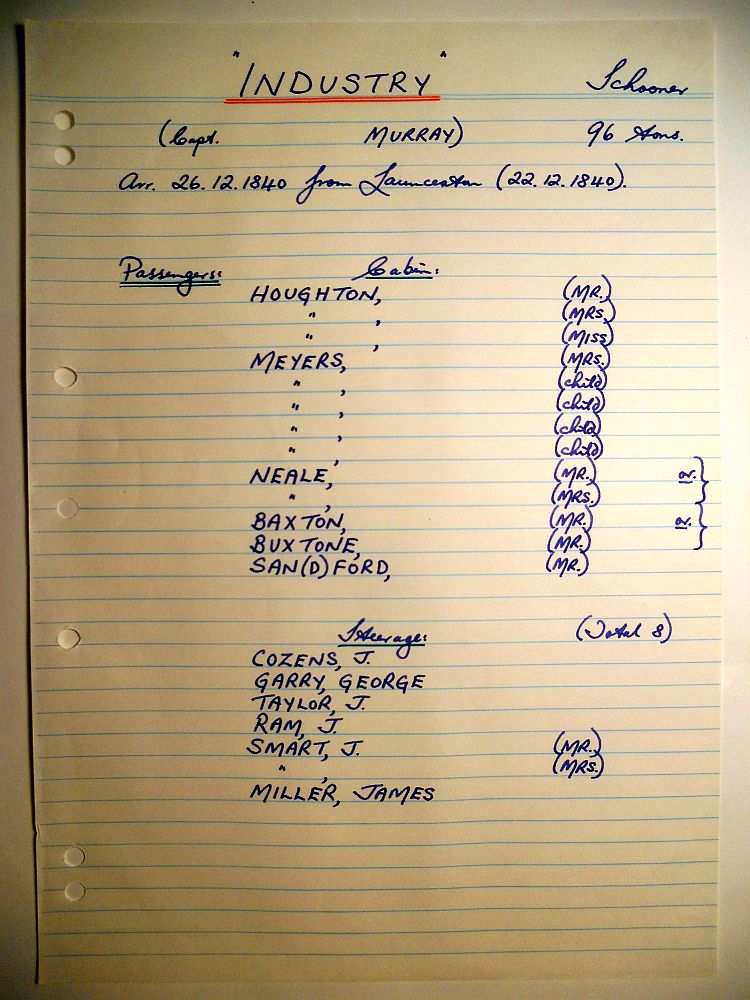 "INDUSTRY" Schooner
(Capt. MURRAY) 96 tons.
Arr. 26.12.1840 from Launceston (22.12.1840).
Passengers: Cabin:
HOUGHTON, (MR.)
" , (MRS.)
" , (MISS)
MEYERS, (MRS.)
" , (child)
" , (child)
" , (child)
" , (child)
NEALE, (MR.) or. }
" , (MRS.)
BAXTON, (MR.) or. }
BUXTONE, (MR.)
SAN(D)FORD, (MR.)
Steerage: (Total 8)
COZENS, J.
GARRY, GEORGE
TAYLOR, J.
RAM, J.
SMART, J. (MR.)
" , (MRS.)
MILLER, JAMES